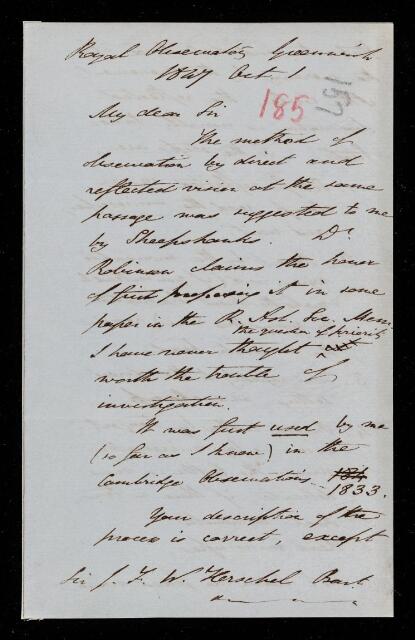 Royal Observatory Greenwich
1847 Oct 1
185
167
My dear Sir
The method of
observation by direct and
reflected vision at the same
passage was suggested to me
by Sheepshanks. Dr
Robinson claims the honor
of first proposing it in some
paper in the R. Ast. Soc. Mem.
the question of priority
I have never thought
worth the trouble of
investigation.
It was first used by me
(so far as I know) in the
Cambridge Observations 184
1833.
Your description of the
process is correct, except
Sir J. F. W. Herschel Bart